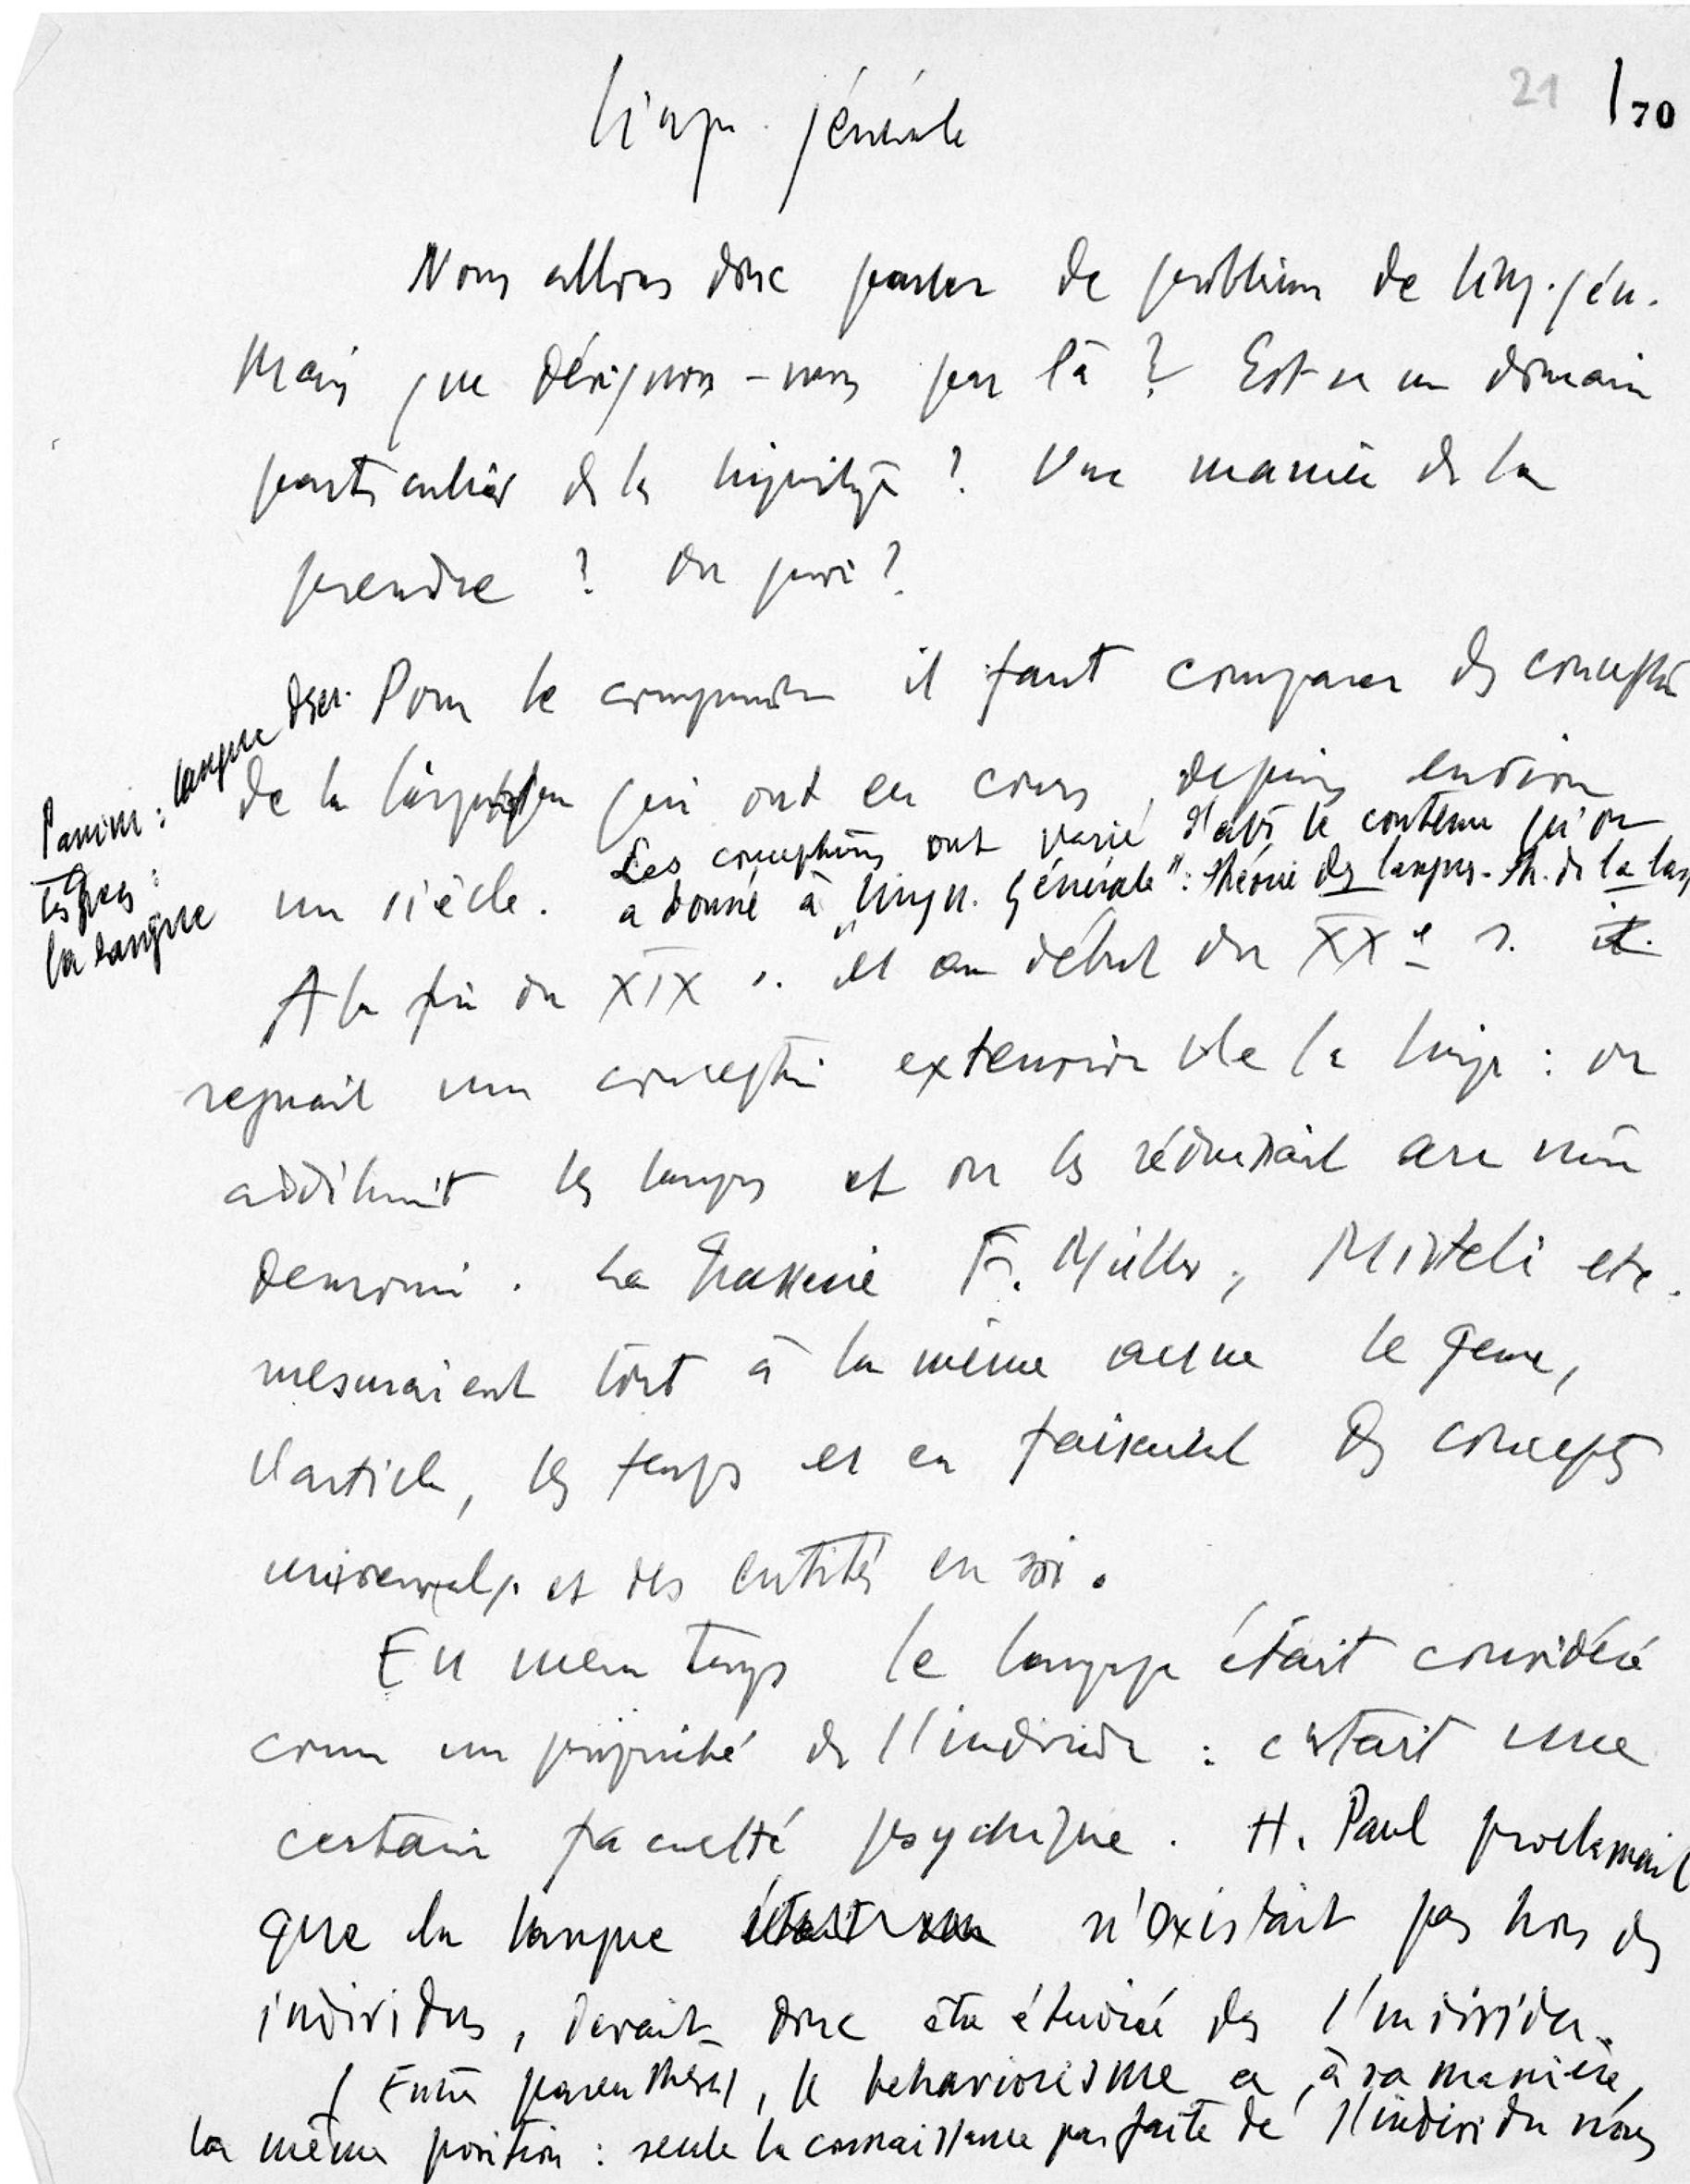 21 170
Ling. générale
Nous allons donc parler de problèmes de ling. gén.
Mais que désignons-nous par là ? Est-ce un domaine
particulier de la linguistique ? Une manière de la
prendre ? Ou quoi ?
Pour le comprendre il faut comparer des conceptions
de la linguistique qui ont eu cours, depuis environ
un siècle. Les conceptions ont varié d'après le contenu qu'on
a donné à "lingu. générale" : théorie des langues - th. de la lang
Panini : langue
les grecs :
la langue
A la fin du XIX s. et au début du XXe s. il
régnait une conception extensive de la ling. : on
additionnait les langues et on les réduisait au même
dénomi. La Grasserie F. Müller, Misteli etc.
mesuraient tout à la même aune le genre,
l'article, les temps et en faisaient des concepts
universels et des entités en soi.
En même temps le langage était considéré
comme une propriété de l'individu : c'était une
certaine faculté psychique. H. Paul proclamait
que la langue était une n'existait pas hors des
individus, devait donc être étudiée ds l'individu.
(Entre parenthèses, le behaviorisme a, à sa manière,
la même position : seule la connaissance parfaite de l'individu nous